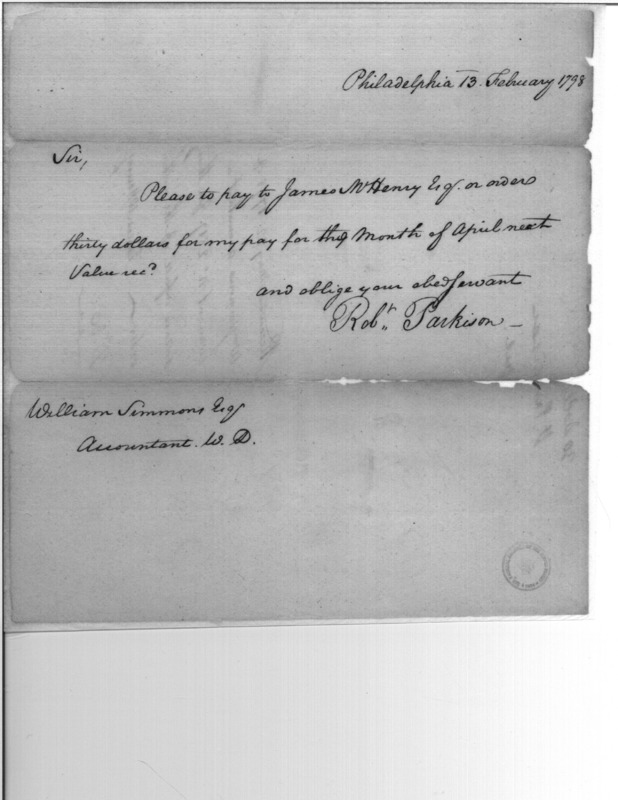 Philadelphia 13. February 1798
Sir,
Please to pay to James McHenry Esqr. or order
thirty dollars for my pay for the Month of April next
Value recd
and oblige your obed servant
Robt,, Parkison
William Simmons Esqr
Accountant. W. D.